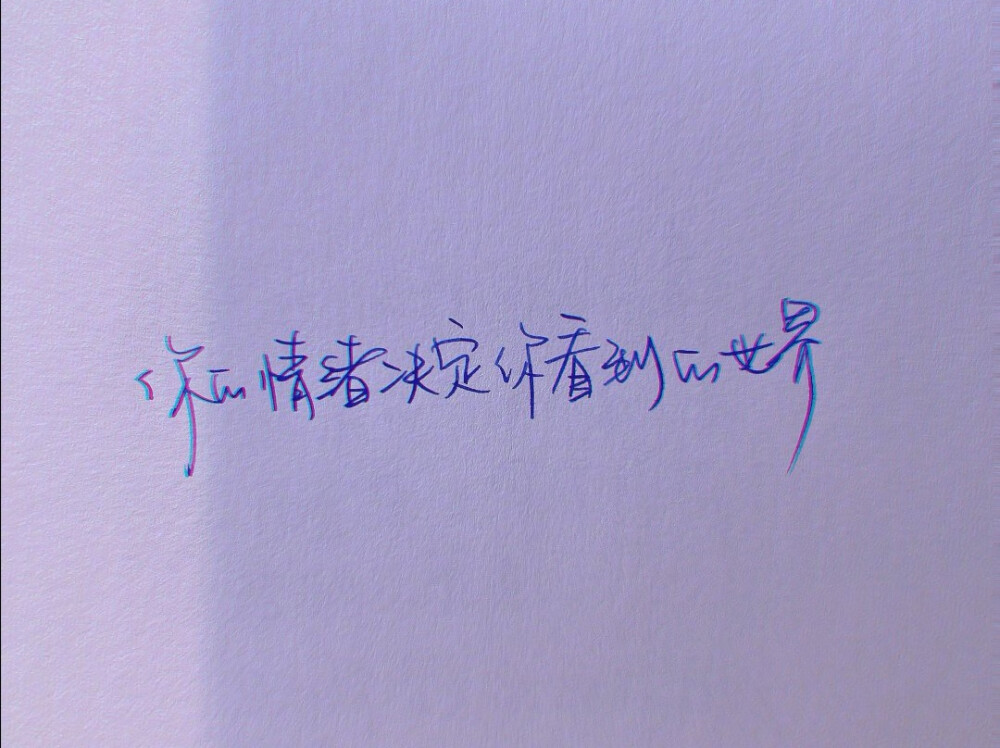 你的情绪决定你看到的世界